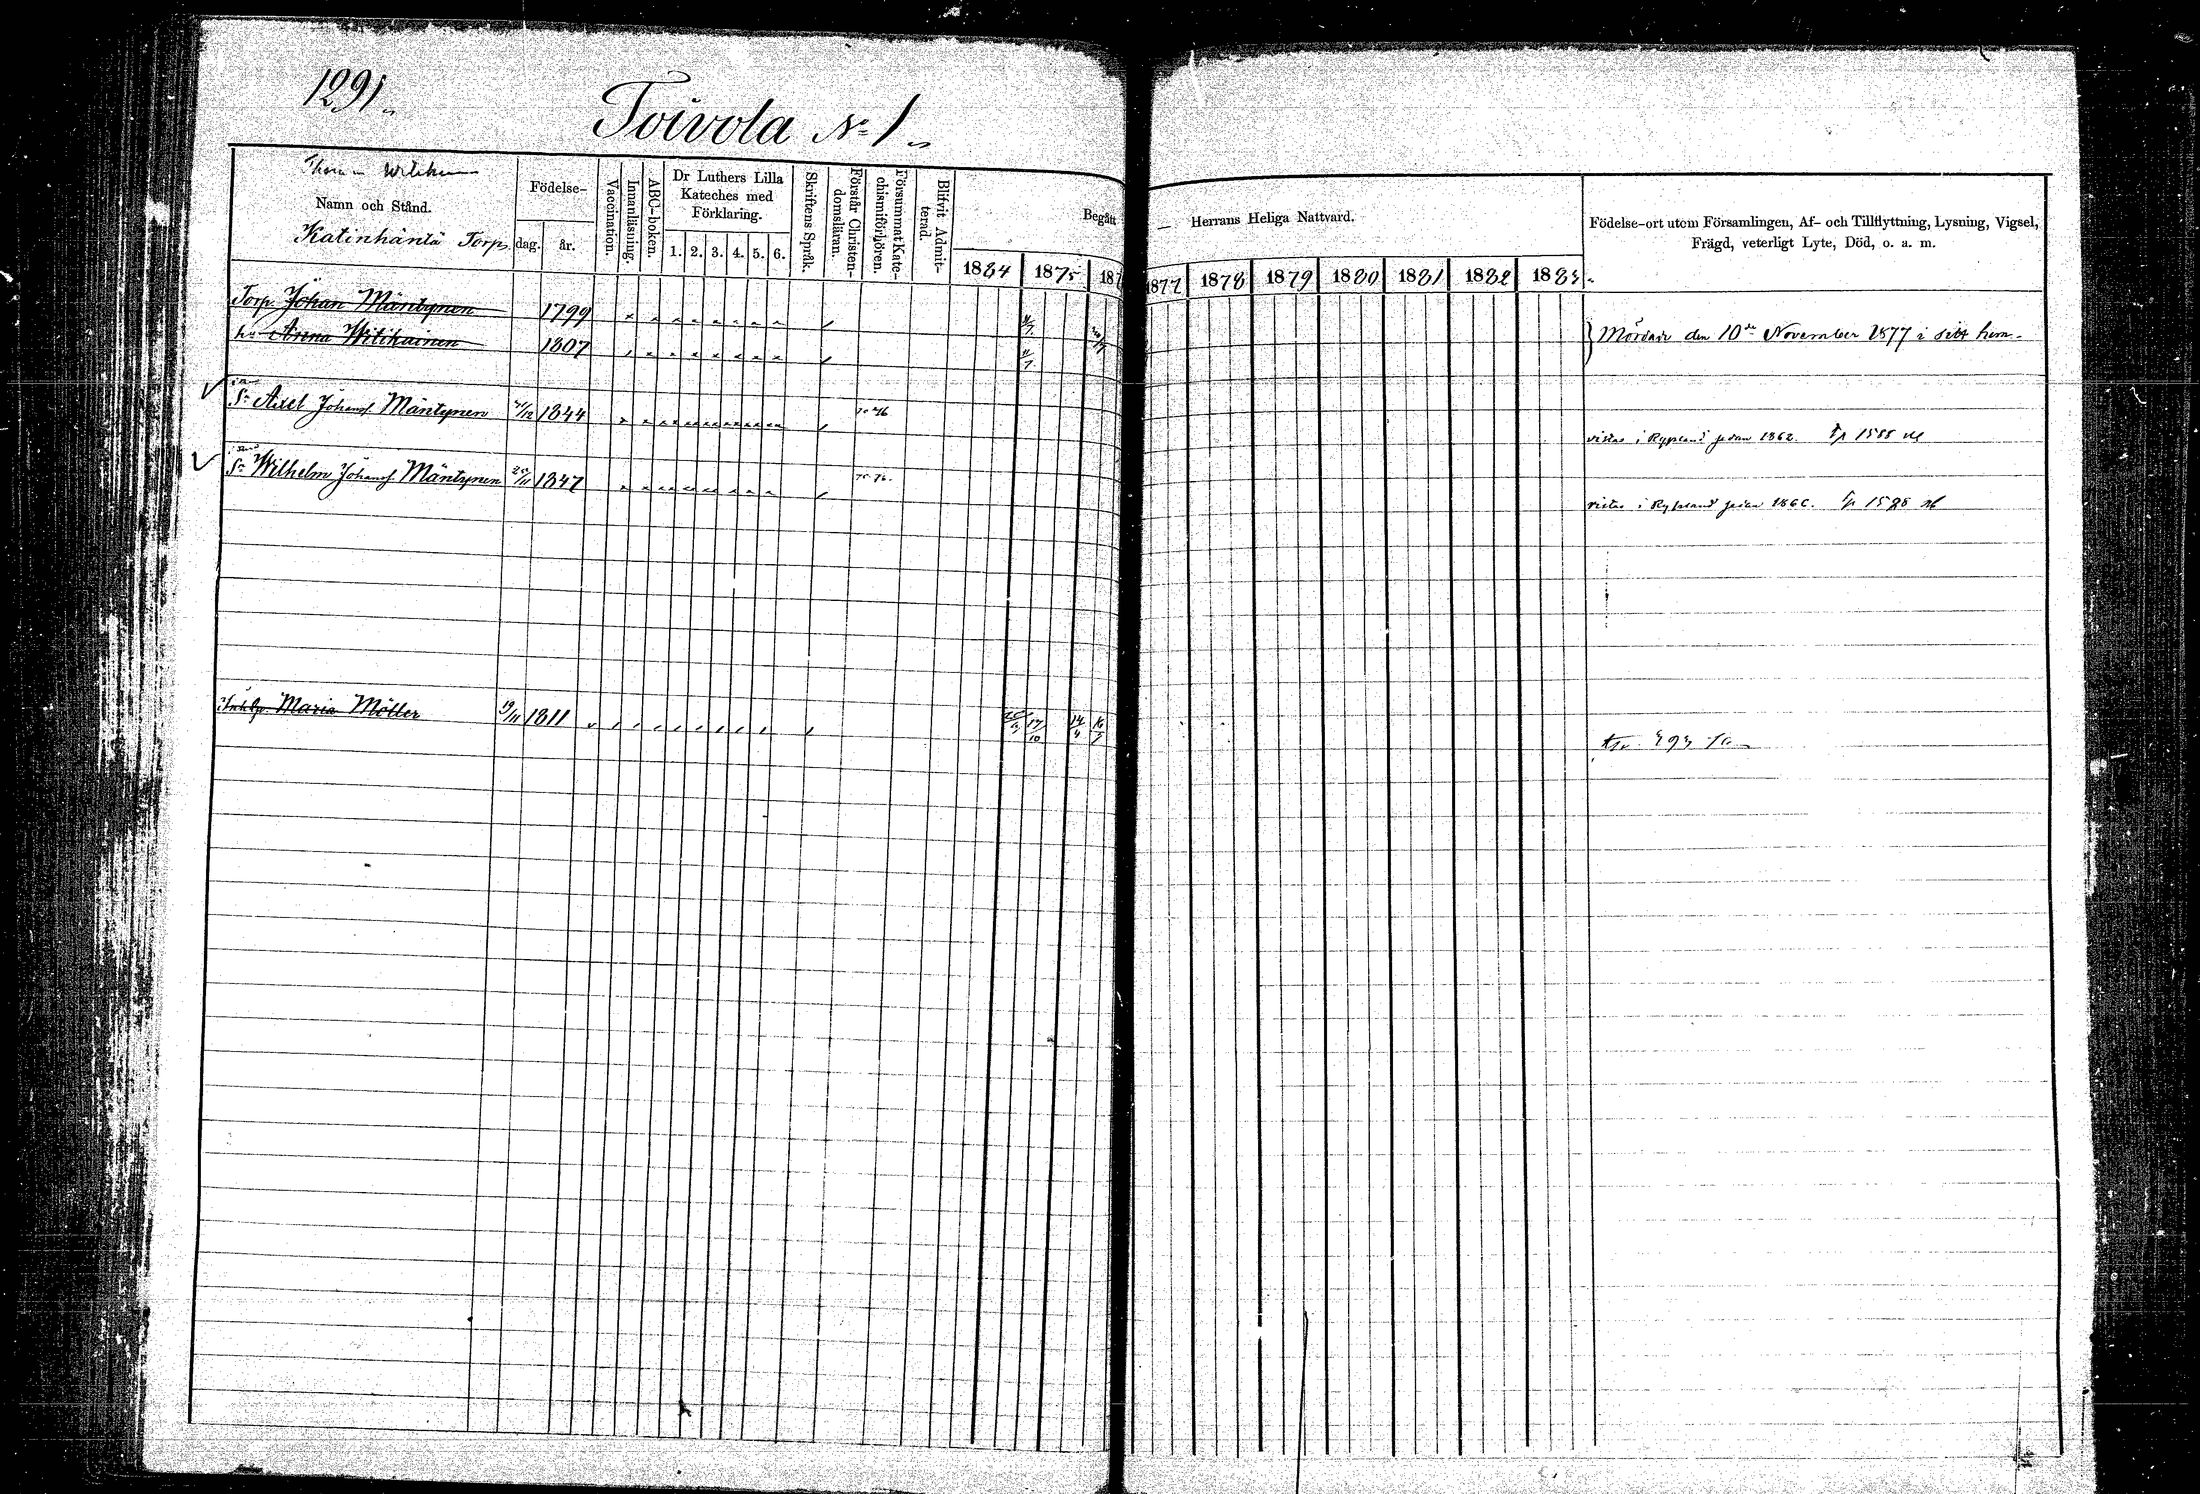 1291.
Toivola No 1.
Namn och Stånd.
Katinhäntä Torp.
Födelse-
dag.
år.
Vaccination.
Innanläsning.
ABC-boken.
Dr Luthers Lilla
Kateches med
Förklaring.
1. 2. 3. 4. 5. 6.
Skriftens Språk.
Förstår Christen-
domsläran.
Försummat Kate-
chismiförhören.
Blifvit Admit-
terad.
Begått
Herrans Heliga Nattvard.
1884 1875 187
1877 1878 1879 1880 1881 1882 1883
Födelse-ort utom Församlingen, Af- och Tillflyttning, Lysning, Vigsel,
Frägd, veterligt Lyte, Död, o. a. m.
Torp. Johan Mäntynen 1799 11/7
hu Anna Witikainen 1807 11/7
Mördade den 10de November 1877 i sitt hem.
Sn Axel Johansf. Mäntynen 21/12 1844 75 76
vistas i Ryssland sedan 1862.
Sn Wilhelm Johansf. Mäntynen 22/11 1847 75 76.
vistas i Ryssland sedan 1866.
Inhtg. Maria Möller 19/11 1811 17/10 14/4